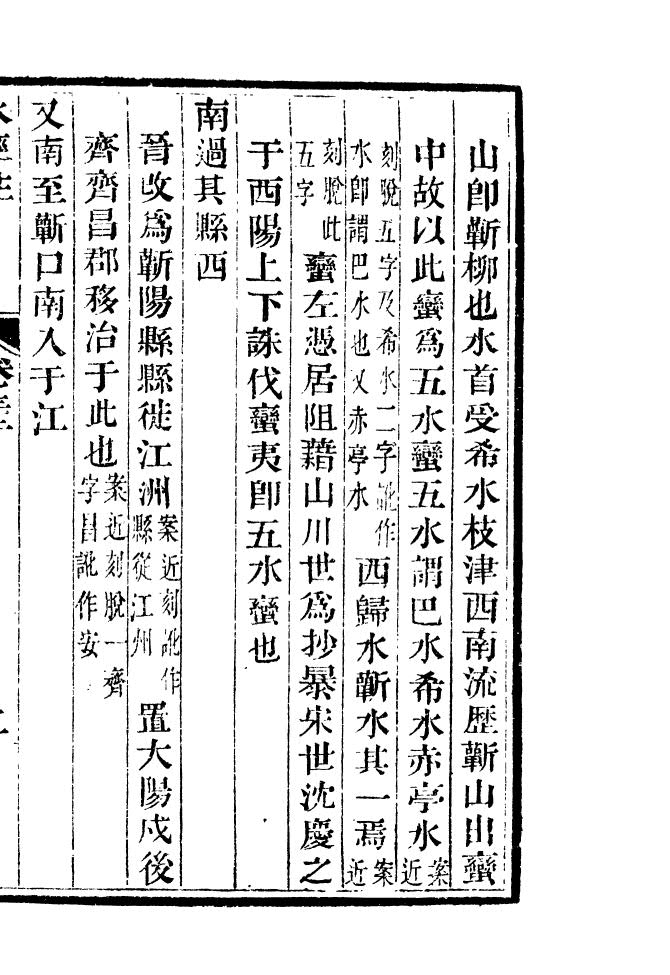 山卽蘄柳也水首受希水枝津西南流歷蘄山出蠻
中故以此蠻爲五水蠻五水謂巴水希水赤亭水案近
刻脫五字及希水二字訛作水卽謂巴水也又赤亭水西歸水蘄水其一焉案近
刻脫此五字蠻左憑居阻藉山川世爲抄暴宋世沈慶之
于西陽上下誅伐蠻夷卽五水蠻也
南過其縣西
晉改爲蘄陽縣縣徙江洲案近刻訛作縣從江州置大陽戍後
齊齊昌郡移治于此也案近刻脫一齊字昌訛作安
又南至蘄口南入于江
水經注